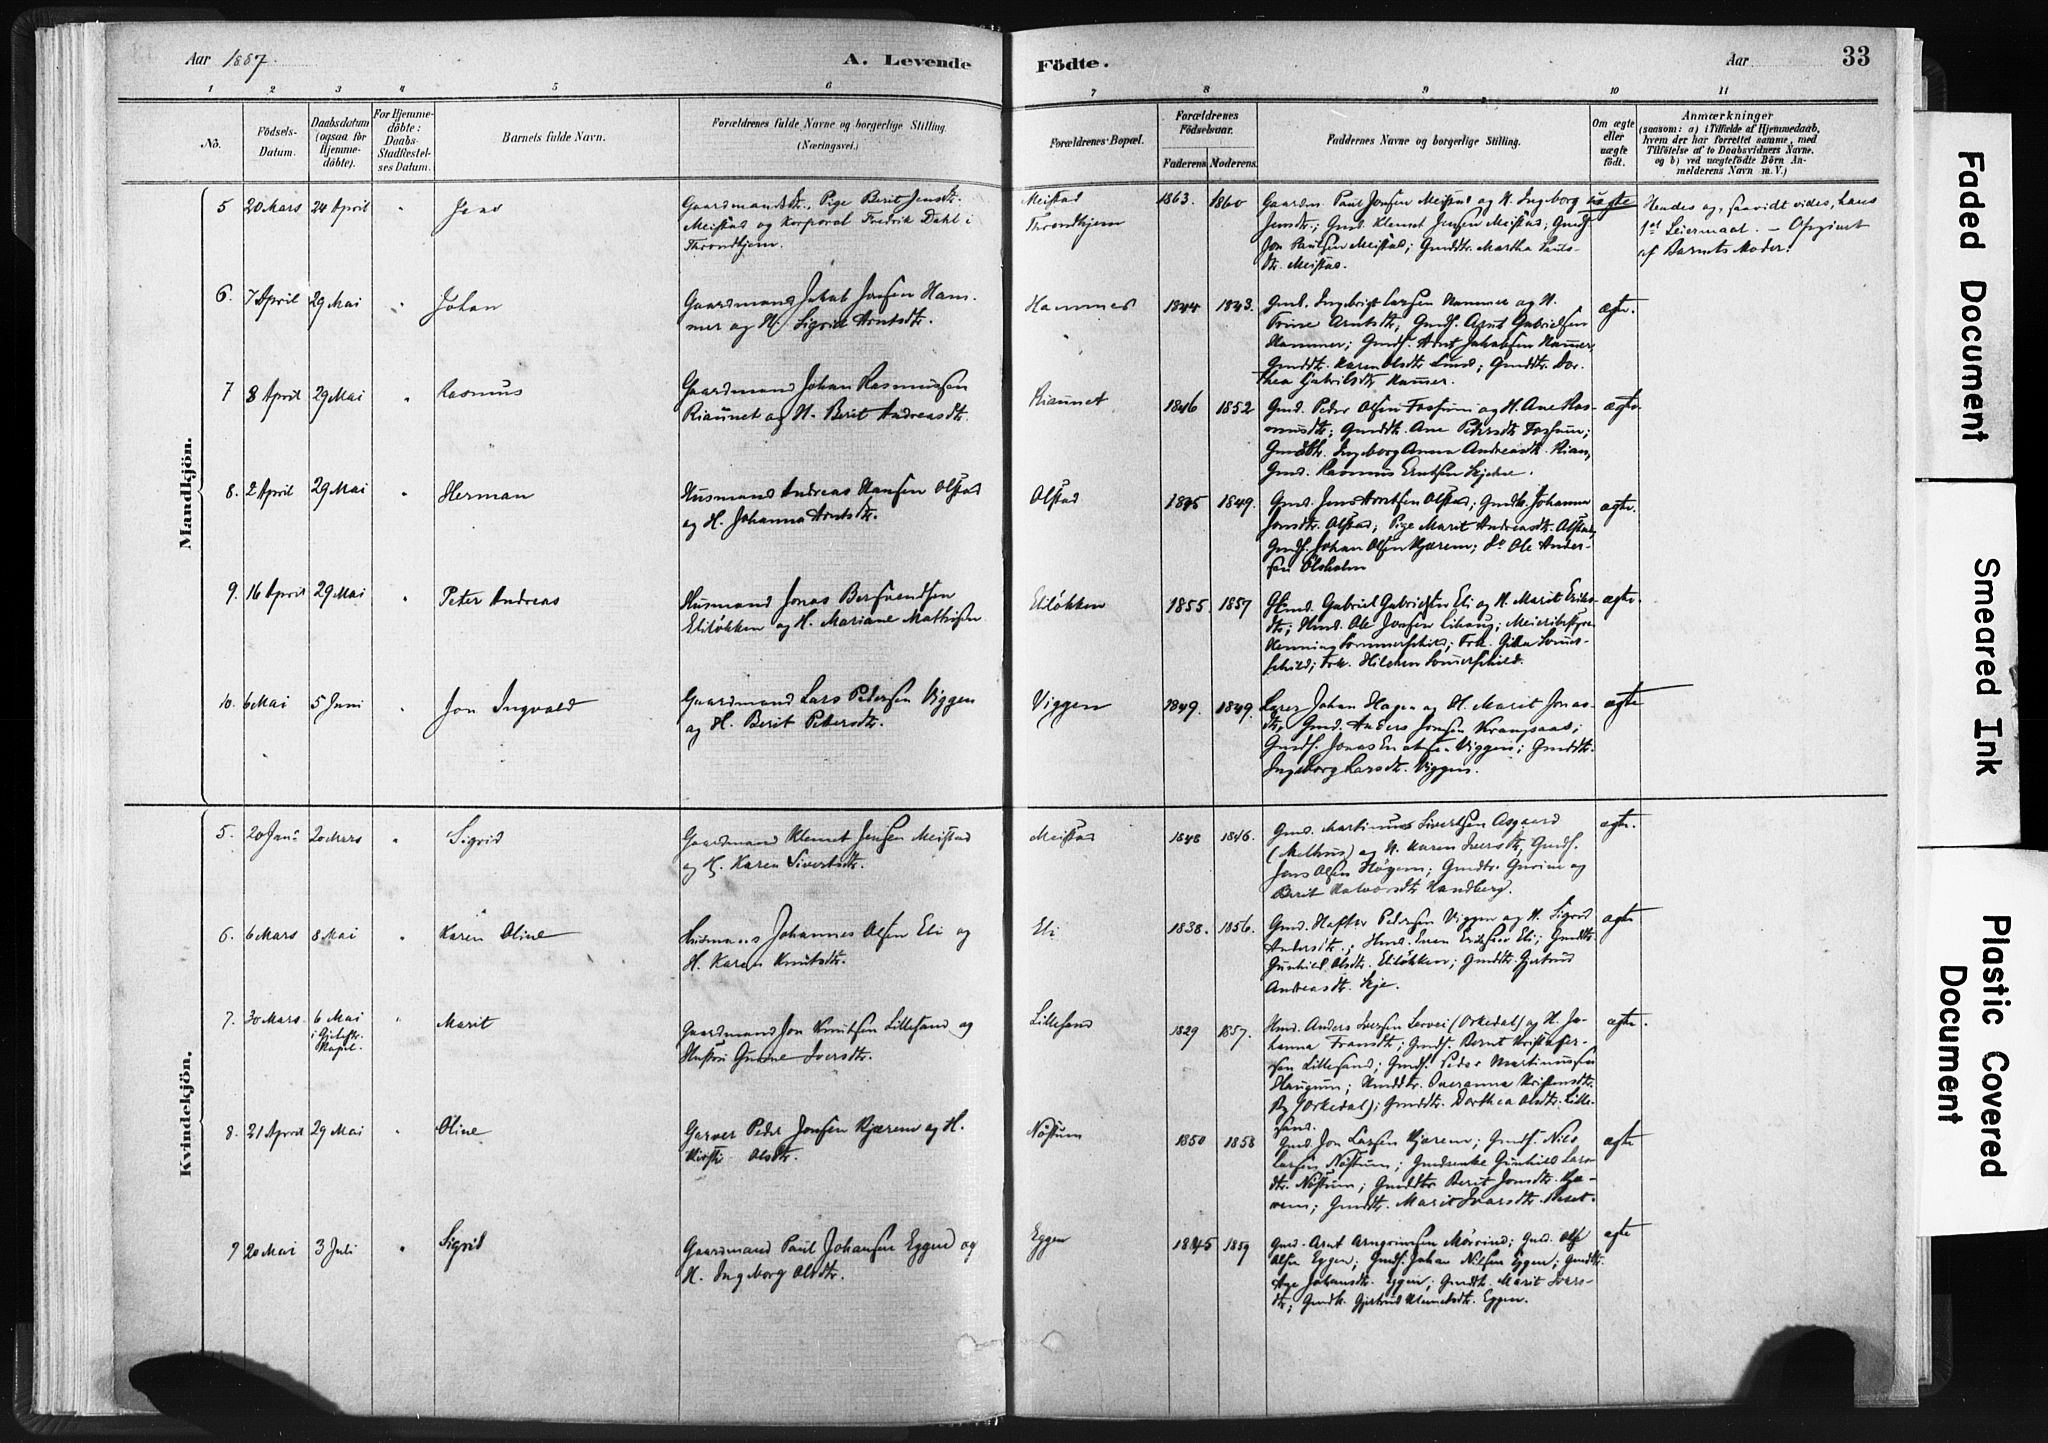 Aar 1887.
A. Levende
Födte.
Aar
33
1 2 3 4 5 6 7 8 9 10 11
No.
Födsels-
Datum.
Daabsdatum
(ogsaa för
Hjemme-
döbte).
For Hjemme-
döbte:
Daabs-
Stadfestel-
ses Datum.
Barnets fulde Navn.
Forældrenes fulde Navne og borgerlige Stilling.
(Næringsvei.)
Forældrenes Bopæl.
Forældrenes
Födselsaar.
Faderens. Moderens.
Faddernes Navne og borgerlige Stilling.
Om ægte
eller
uægte
födt.
Anmærkninger
(saasom: a) i Tilfælde af Hjemmedaab,
hvem der har forrettet samme, med
Tilföielse af to Daabsvidners Navne.
og b) ved uægtefödte Börn An-
melderens Navn m. V.)
Mandkjön.
5 20 Mars 24 April " Jens
Gaardmandsdtr., Pige Berit Jensdtr.
Meistad og Korporal Fredrik Dahl i
Throndhjem.
Meistad
Throndhjem
1863. 1860
Gaardm. Paul Jonsen Meistad og H. Ingeborg
Jensdtr.; Gmd. Klemet Jensen Meistad; Gmdf.
Jon Paulsen Meistad; Gmddtr. Martha Pauls-
dtr. Meistad.
uægte
Hendes og, saavidt vides, hans
1st Leiermaal. – Opgivet
af Barnets Moder.
6. 7 April 29 Mai " Johan
Gaardmand Jakob Jonsen Ham-
mer og H. Sigrid Arntsdtr.
Hammer
1844 1843.
Gmd. Ingebrigt Larsen Hammer og H.
Trine Arntsdtr; Gmdf. Arnt Gabrielsen
Hammer; Gmdf. Arnt Jakobsen Hammer,
Gmddtr. Karen Olsdtr. Lund; Gmddtr. Dor-
thea Gabrilsdtr. Hammer.
ægte.
7 8 April 29 Mai " Rasmus
Gaardmand Johan Rasmussen
Riaunet og H. Berit Andreasdtr.
Riaunet
1846 1852
Gmd. Peder Olsen Fossum og H. Ane Ras-
musdtr; Gmddtr. Ane Pedersdtr. Fossum;
Gmddtr. Ingeborg Anna Andreasdtr. Rian,
Gmd. Rasmus Erntsen
ægte
8. 2 April 29 Mai " Herman
Husmand Andreas Hansen Olstad
og H. Johanna Arntsdtr.
Olstad
1849.
Gmd. Jens Arntsen Olstad; Gmdk. Johanna
Jonsdtr. Olstad; Pige Marit Andreasdtr. Olstad,
Gmdf. Johan Olsen Kjærem; Do Ole Ander-
sen Olsholm
ægte.
9. 16 April 29 Mai " Peter Andreas
Husmand Jonas Bersvendsen
Eliløkken og H. Mariane Mathisen
Eliløkken
1855. 1857
Hmd. Gabriel Gabrielsen Eli og H. Marit Eriks-
dtr; Hmd. Ole Jonsen; Meieribestyrer
Henning Sommerschild; Frk. Gina Somer-
schild; Frk. Hildur Somerschild.
ægte
10. 6 Mai 5 Juni " Jon Ingvald
Gaardmand Lars Pedersen Viggen
og H. Berit Petersdtr.
Viggen
1849. 1849.
Lærer Johan Hagen og H. Marit Jonas-
dtr, Gmd. Anders Jonsen Krangsaas;
Gmdf. Jonas Viggen; Gmddtr.
Ingeborg Larsdtr. Viggen.
ægte
Kvindekjön.
5. 20 Jan. 20 Mars " Sigrid
Gaardmand Klemet Jensen Meistad
og H. Karen Sivertsdtr.
Meistad
1848 1846.
Gmd. Martinus Sivertsen Asgaard
(Melhus) og H. Karen Iversdtr, Gmdf.
Jens Olsen Høgem; Gmddtr. Gurine og
Berit Halvorsdtr. Handberg.
ægte.
6. 6 Mars 8 Mai " Karen Oline
Husmand Johannes Olsen Eli og
H. Karen Knutsdtr.
Eli
1838. 1856.
Gmd. Haftor Pedersen Viggen og H. Sigrid
Andersdtr.; Hmd. Sven Eriksen Eli; Gmddtr.
Gunhild Olsdtr. Eliløkken; Gmddtr. Gjertrud
Andreasdtr. Skje.
ægte
7. 30 Mars 6 Mai
i
Kapel.
" Marit
Gaardmand Jon Knutsen Lillesand og
Hustru Gurine Iversdtr.
Lillesand
1829 1857.
Hmd. Anders Iversen (Orkedal) og H. Jo-
hanna Fransdtr; Gmdf. Bernt Kristofer-
sen Lillesand; Gmdf. Peder Martinussen
Haugum; Gmddtr. Kristensdtr.
By (Orkedal); Gmddtr. Dorthea Olsdtr. Lille-
sand.
ægte.
8. 21 April 29 Mai " Oline
Garver Peder Jonsen Kjærem og H.
Kirsti Olsdtr.
Nøstum
1850 1858
Gmd. Jon Larsen Kjærem; Gmdf. Nils
Larsen Nøstum; Gmdenke Gunhild Lars-
dtr. Nøstum; Gmddtr Berit Jonsdtr. Kjæ-
rem; Gmddtr. Marit Ivarsdtr.
ægte
9 20 Mai 3 Juli " Sigrid
Gaardmand Paul Johansen Eggen og
H. Ingeborg Olsdtr.
Eggen
1845 1859
Gmd. Arnt Arngrimsen; Gmd. Ole
Olsen Eggen; Gmdf. Johan Nilsen Eggen; Gmddtr.
Johansdtr. Eggen; Gmddtr. Marit Ivers-
dtr; Gmdk. Gjertrud Klemetsdtr. Eggen.
ægte
Faded Document
Smeared Ink
Plastic Covered
Document